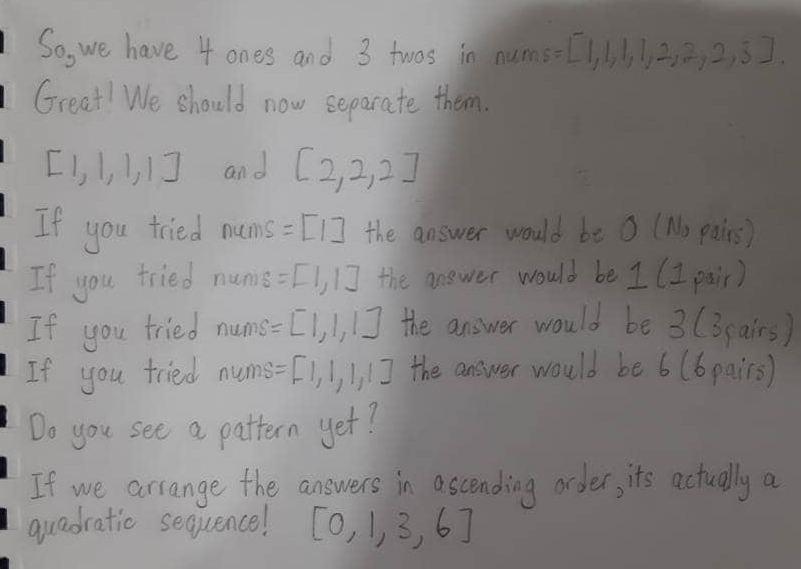 So, we have 4 ones and 3 twos in nums=[1,1,1,1,2,2,2,3].
Great! We should now separate them.
[1,1,1,1] and [2,2,2]
If you tried nums=[1] the answer would be 0 (No pairs)
If you tried nums=[1,1] the answer would be 1 (1 pair)
If you tried nums=[1,1,1] the answer would be 3 (3 pairs)
If you tried nums=[1,1,1,1] the answer would be 6 (6 pairs)
Do you see a pattern yet?
If we arrange the answers in ascending order, its actually a
quadratic sequence! [0,1,3,6]